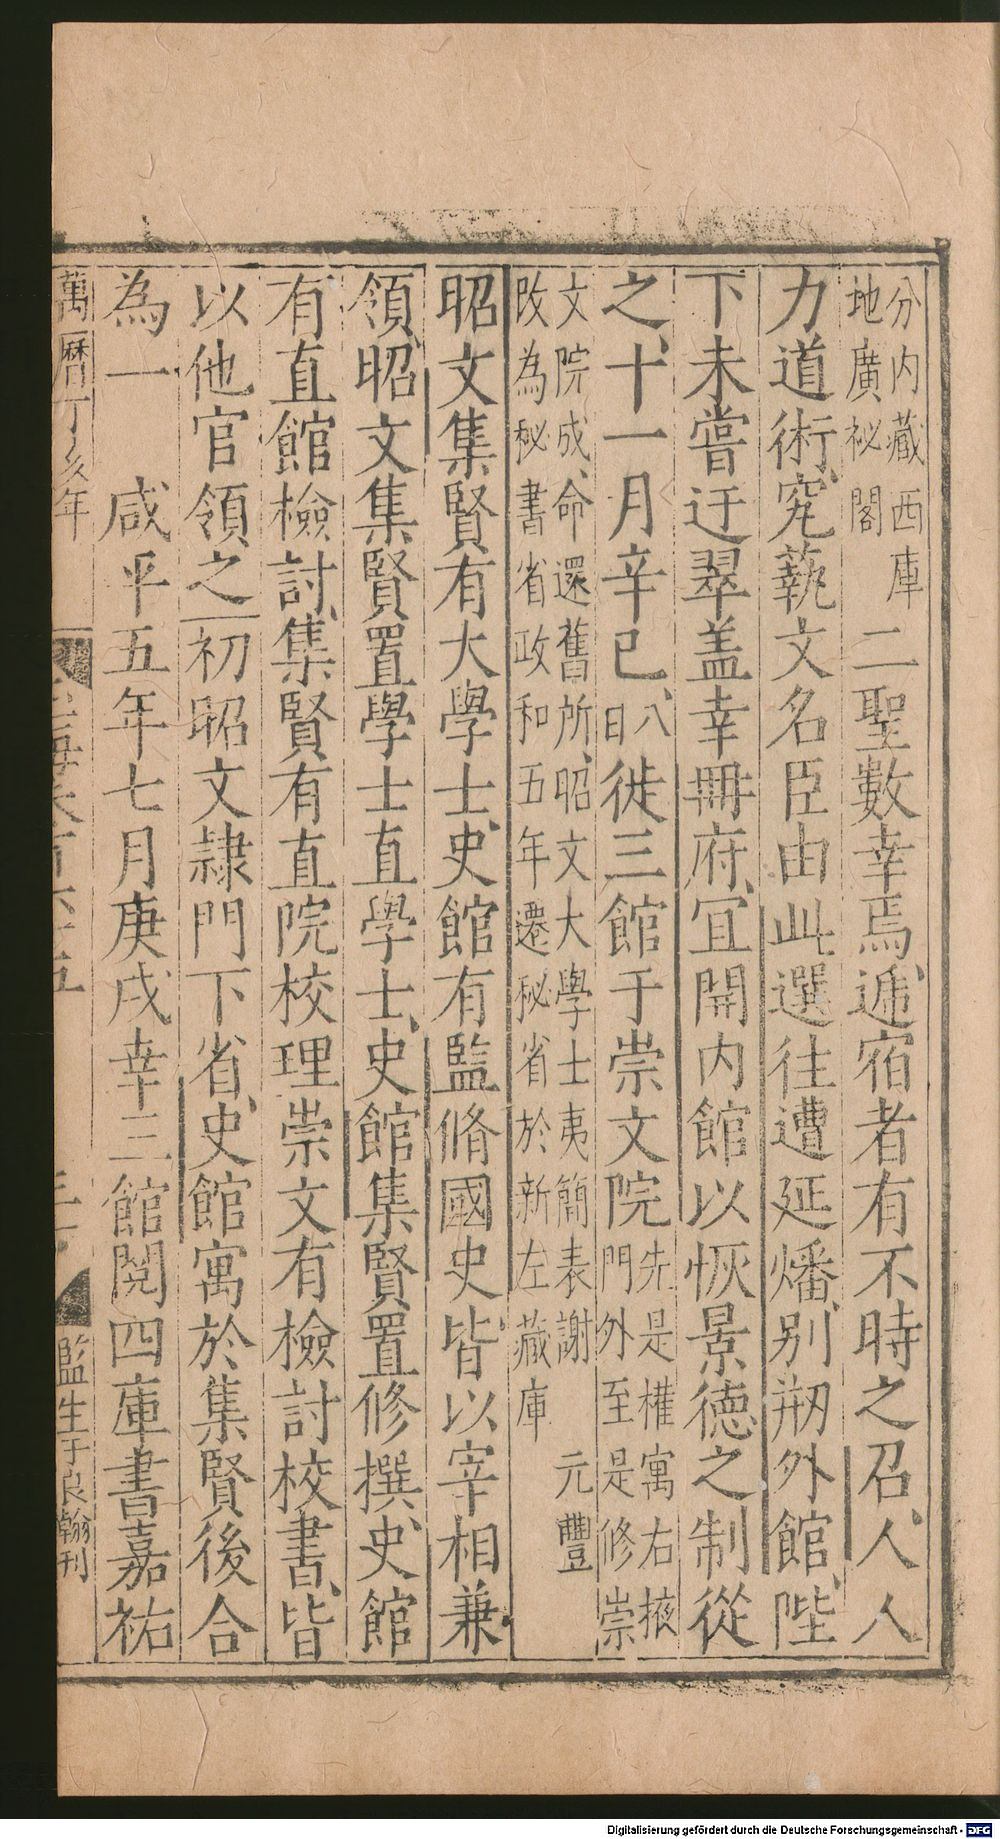 分内藏西庫地廣祕閣 二聖數幸焉遞宿者有不時之召人人
力道術究藝文名臣由此選往遭延燔别刱外館陛
下未嘗迂翠盖幸冊府宜開内館以恢景德之制從
之十一月辛巳八日徙三館于崇文院先是權寓右掖門外至是修崇
文院成命還舊所昭文大學士夷簡表謝 元豐改為秘書省政和五年遷秘省於新左藏庫
昭文集賢有大學士史館有監脩國史皆以宰相兼
領昭文集賢置學士直學士史館集賢置修撰史館
有直館檢討集賢有直院校理崇文有檢討校書皆
以他官領之初昭文隷門下省史館寓於集賢後合
為一 咸平五年七月庚戌幸三館閱四庫書嘉祐
萬曆丁亥年 玉海卷百六十五 監生于良翰刊
Digitalisierung gefördert durch die Deutsche Forschungsgemeinschaft - DFG